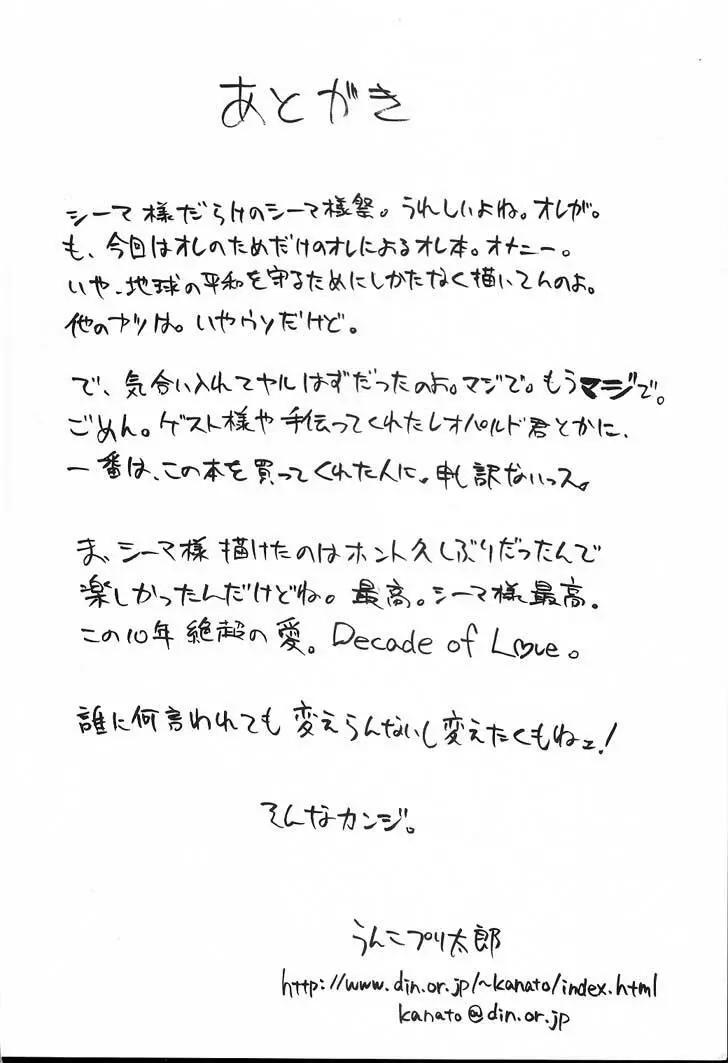 あとがき
シーマ様だらけのシーマ様祭。うれしいよね。オレが。
も、今回はオレのためだけのオレによるオレ本。オナニー。
いや、地球の平和を守るためにしかたなく描いてんのよ。
他のナツは。いやウソだけど。
で、気合い入れてヤルはずだったのよ。マジで。もうマジで。
ごめん。ゲスト様や手伝ってくれたレオパルド君とかに、
一番は、この本を買ってくれた人に。申し訳ないっス。
ま、シーマ様描けたのはホント久しぶりだったんで
楽しかったんだけどね。最高。シーマ様最高。
この10年絶超の愛。Decade of L♡ve。
誰に何言われても変えらんないし変えたくもねェ!
そんなカンジ。
うんこプリ太郎
http://www.din.or.jp/~kanato/index.html
kanato@din.or.jp